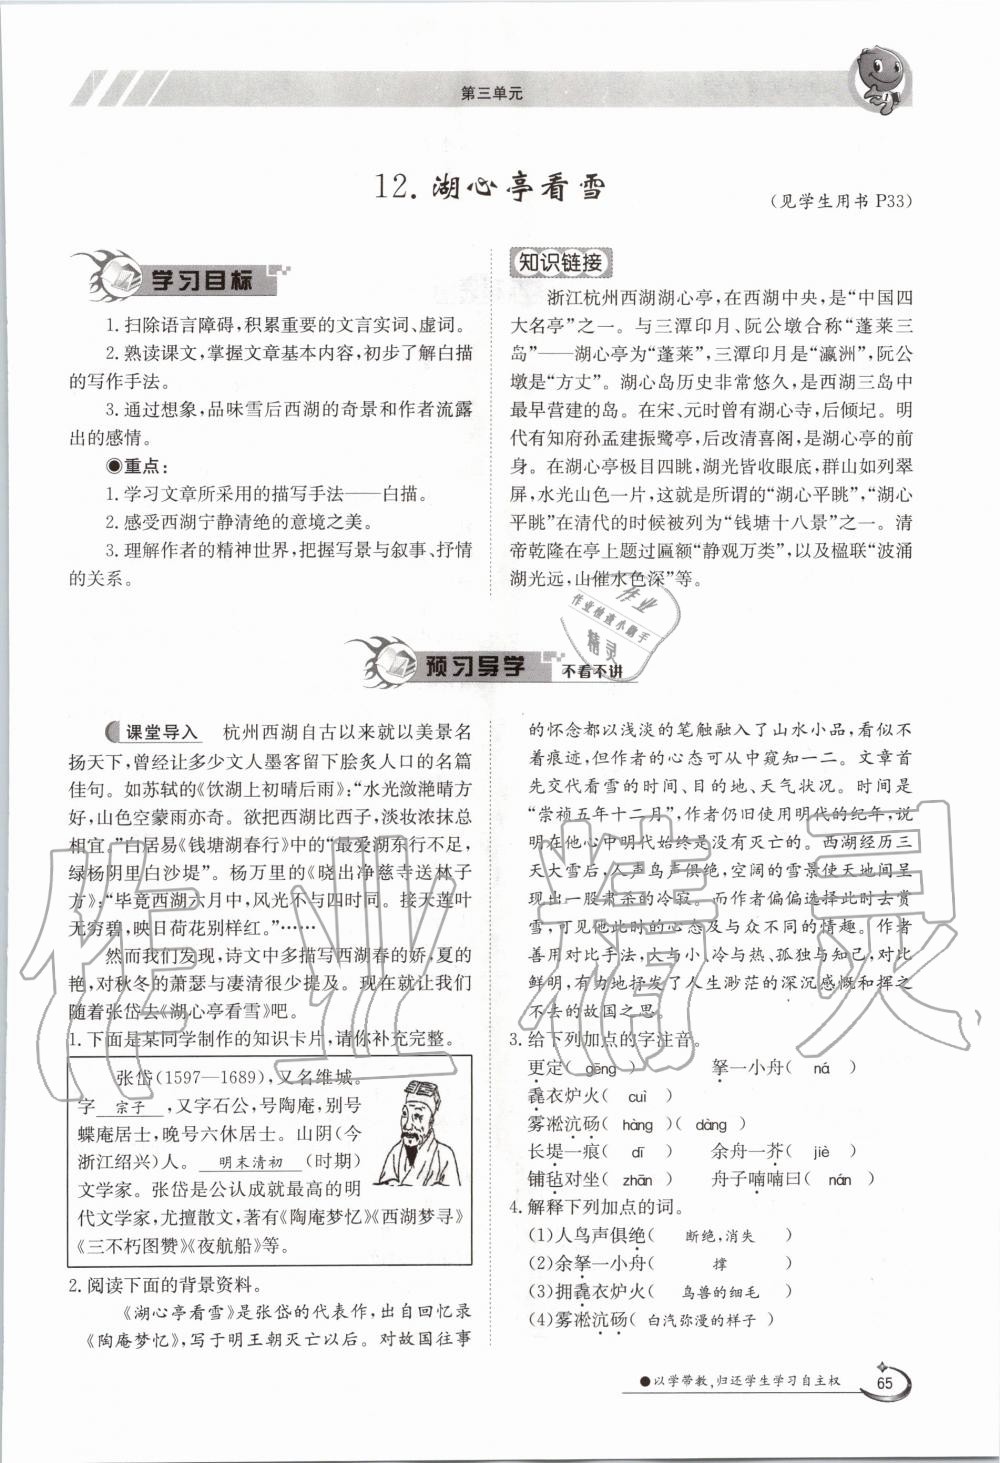 第三单元
12. 湖心亭看雪
(见学生用书 P33)
学习目标
1. 扫除语言障碍,积累重要的文言实词、虚词。
2. 熟读课文,掌握文章基本内容,初步了解白描
的写作手法。
3. 通过想象,品味雪后西湖的奇景和作者流露
出的感情。
●重点:
1. 学习文章所采用的描写手法——白描。
2. 感受西湖宁静清绝的意境之美。
3. 理解作者的精神世界,把握写景与叙事、抒情
的关系。
知识链接
浙江杭州西湖湖心亭,在西湖中央,是“中国四
大名亭”之一。与三潭印月、阮公墩合称“蓬莱三
岛”——湖心亭为“蓬莱”,三潭印月是“瀛洲”,阮公
墩是“方丈”。湖心岛历史非常悠久,是西湖三岛中
最早营建的岛。在宋、元时曾有湖心寺,后倾圮。明
代有知府孙孟建振鹭亭,后改清喜阁,是湖心亭的前
身。在湖心亭极目四眺,湖光皆收眼底,群山如列翠
屏,水光山色一片,这就是所谓的“湖心平眺”,“湖心
平眺”在清代的时候被列为“钱塘十八景”之一。清
帝乾隆在亭上题过匾额“静观万类”,以及楹联“波涌
湖光远,山催水色深”等。
作业
作业检查小助手
精灵
预习导学
不看不讲
课堂导入 杭州西湖自古以来就以美景名
扬天下,曾经让多少文人墨客留下脍炙人口的名篇
佳句。如苏轼的《饮湖上初晴后雨》:“水光潋滟晴方
好,山色空蒙雨亦奇。欲把西湖比西子,淡妆浓抹总
相宜。”白居易《钱塘湖春行》中的“最爱湖东行不足,
绿杨阴里白沙堤”。杨万里的《晓出净慈寺送林子
方》:“毕竟西湖六月中,风光不与四时同。接天莲叶
无穷碧,映日荷花别样红。”……
然而我们发现,诗文中多描写西湖春的娇,夏的
艳,对秋冬的萧瑟与凄清很少提及。现在就让我们
随着张岱去《湖心亭看雪》吧。
1. 下面是某同学制作的知识卡片,请你补充完整。
张岱(1597—1689),又名维城。
字 宗子 ,又字石公,号陶庵,别号
蝶庵居士,晚号六休居士。山阴(今
浙江绍兴)人。 明末清初 (时期)
文学家。张岱是公认成就最高的明
代文学家,尤擅散文,著有《陶庵梦忆》《西湖梦寻》
《三不朽图赞》《夜航船》等。
2. 阅读下面的背景资料。
《湖心亭看雪》是张岱的代表作,出自回忆录
《陶庵梦忆》,写于明王朝灭亡以后。对故国往事
的怀念都以浅淡的笔触融入了山水小品,看似不
着痕迹,但作者的心态可从中窥知一二。文章首
先交代看雪的时间、目的地、天气状况。时间是
“崇祯五年十二月”,作者仍旧使用明代的纪年,说
明在他心中明代始终是没有灭亡的。西湖经历三
天大雪后,人声鸟声俱绝,空阔的雪景使天地间呈
现出一股肃杀的冷寂。而作者偏偏选择此时去赏
雪,可见他此时的心态及与众不同的情趣。作者
善用对比手法,大与小、冷与热、孤独与知己,对比
鲜明,有力地抒发了人生渺茫的深沉感慨和挥之
不去的故国之思。
3. 给下列加点的字注音。
更定( gēng ) 拏一小舟( ná )
毳衣炉火( cuì )
雾凇沆砀( hàng )( dàng )
长堤一痕( dī ) 余舟一芥( jiè )
铺毡对坐( zhān ) 舟子喃喃曰( nán )
4. 解释下列加点的词。
(1)人鸟声俱绝( 断绝,消失 )
(2)余拏一小舟( 撑 )
(3)拥毳衣炉火( 鸟兽的细毛 )
(4)雾凇沆砀( 白汽弥漫的样子 )
作业精灵
●以学带教,归还学生学习自主权
65